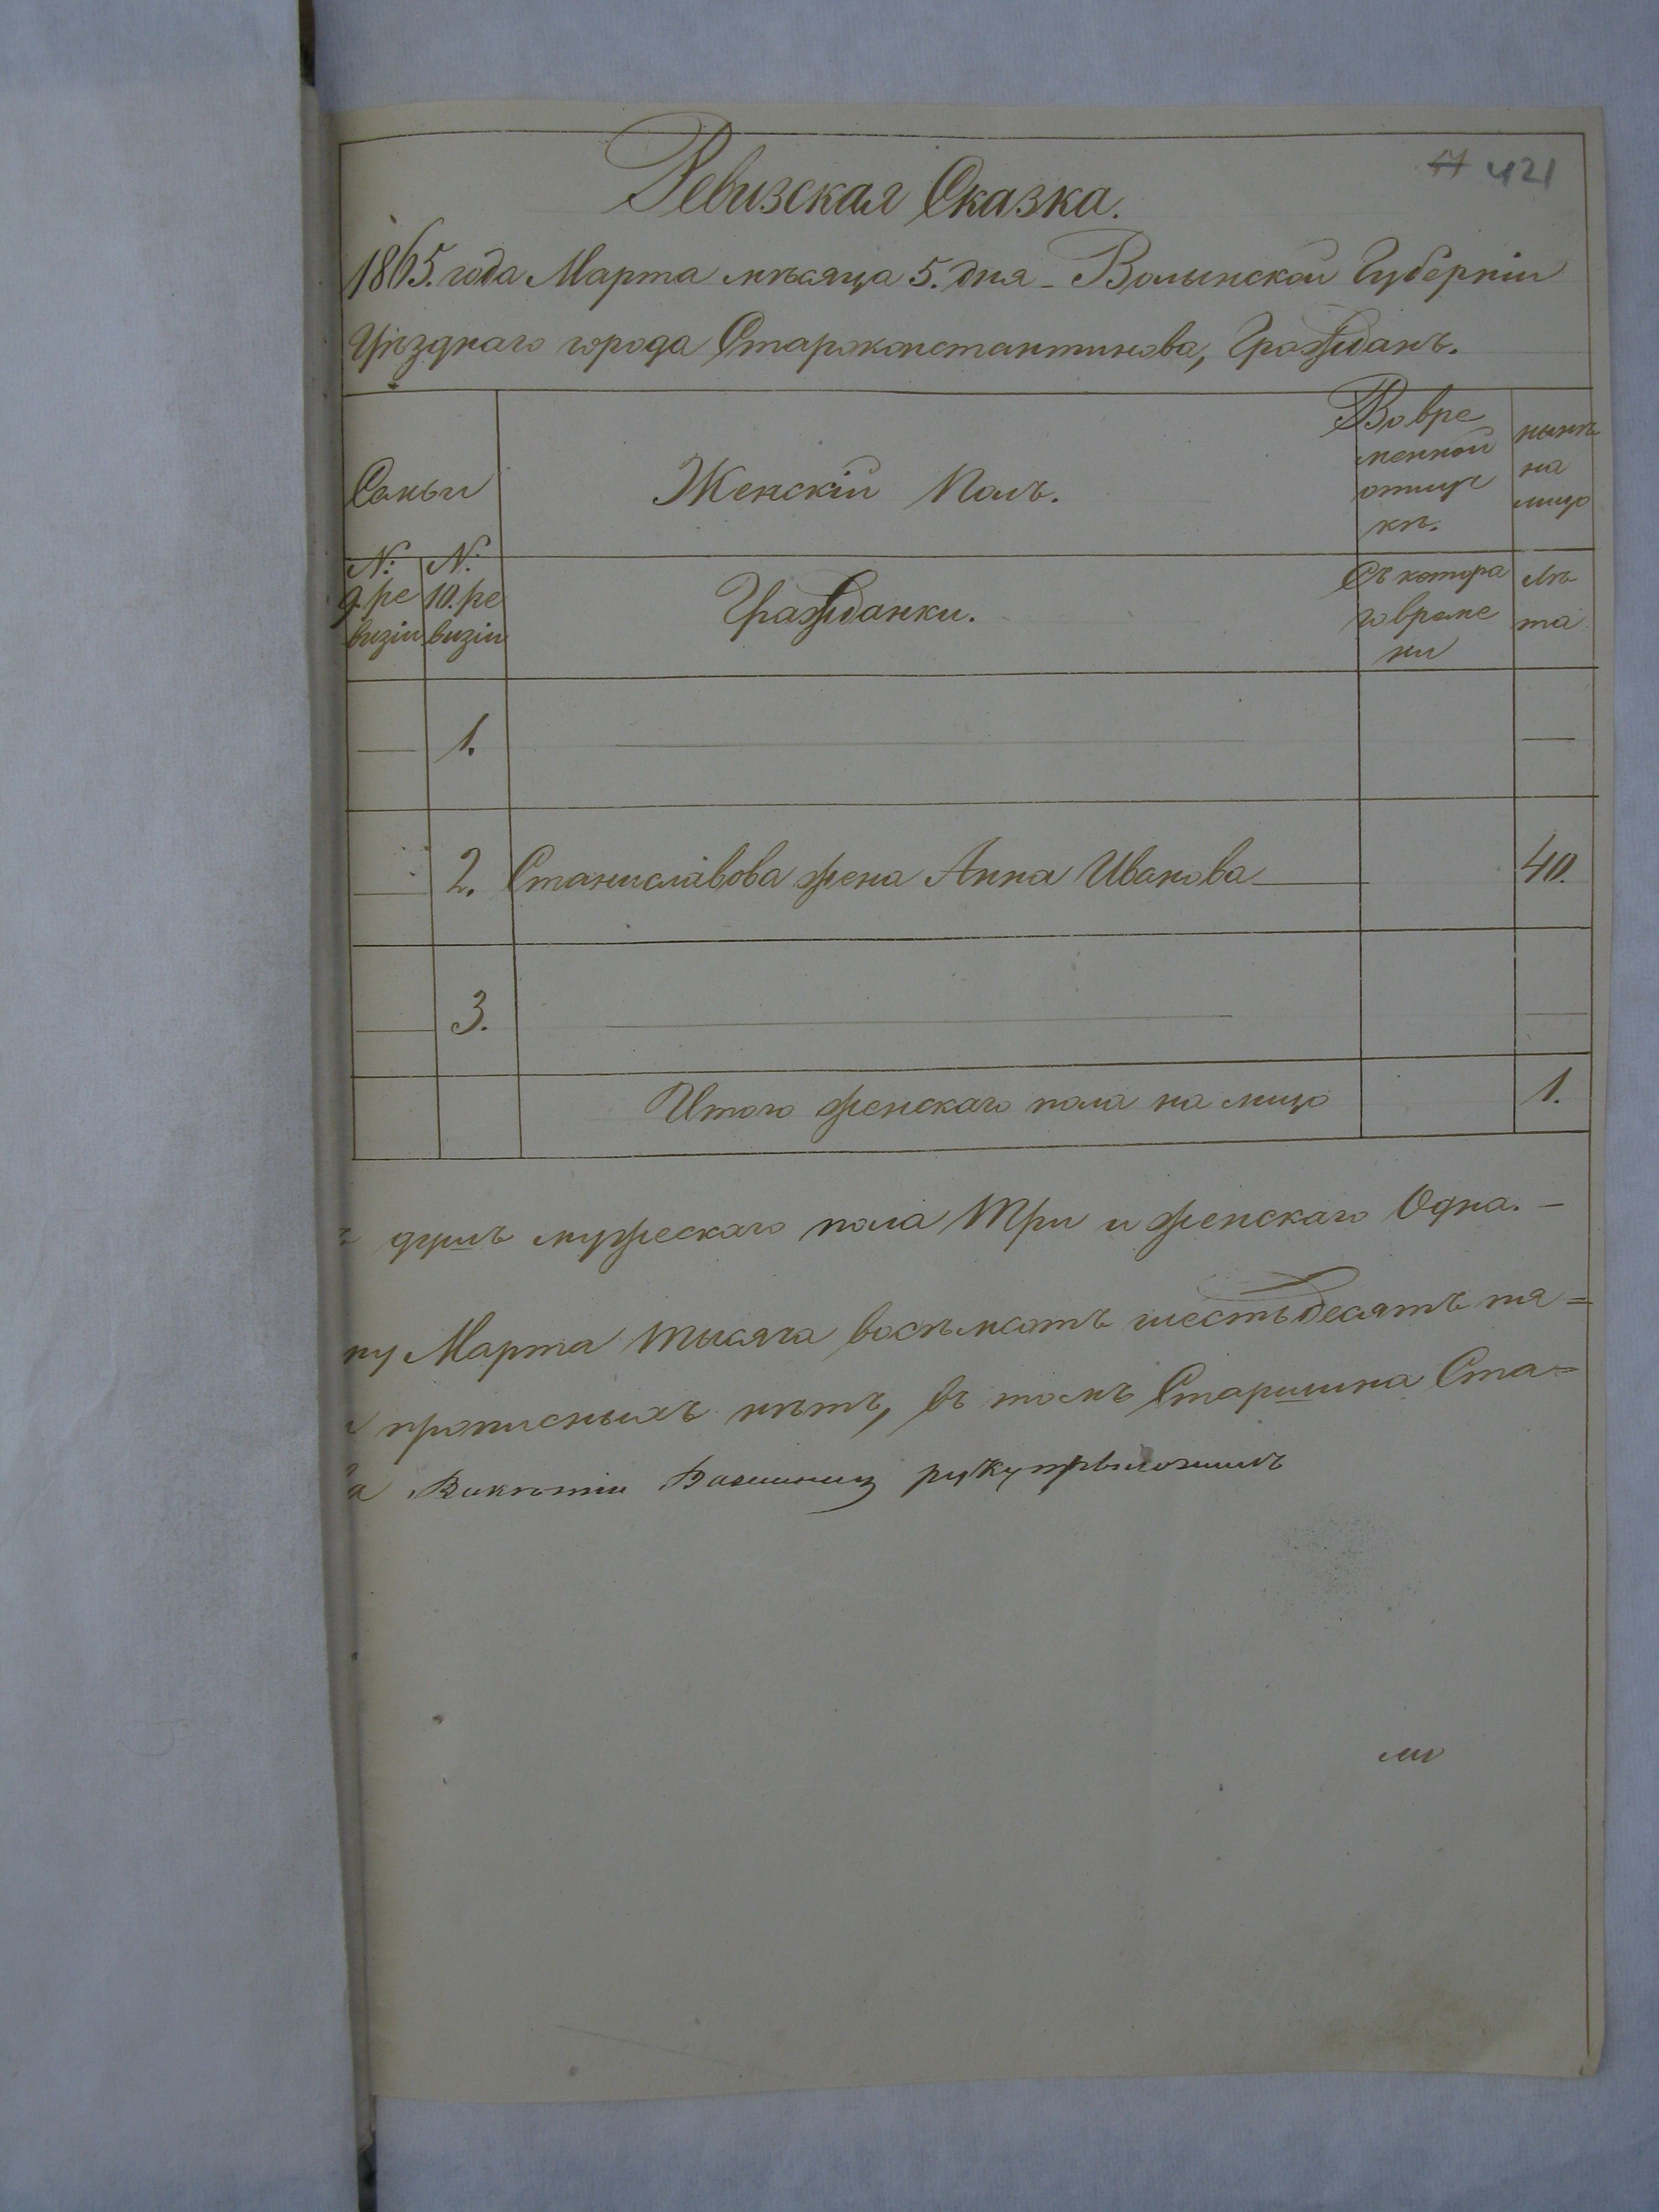 421
Ревизская Сказка.
1865. года Марта мѣсяца 5. дня - Волынской Губерніи
Уѣзднаго города Староконстантинова, Гражданъ.
Семьи
Женскій Полъ.
Во вре
менной
отлуч
кѣ.
нынѣ
на
лицо
№:
9. ре
визіи
№:
10. ре
визіи
Гражданки.
Съ котора
го време
ни
лѣ
та
1.
2. Станиславова жена Анна Иванова 40.
3.
Итого женскаго пола на лицо 1.
душъ мужескаго пола Три и женскаго Одна. -
Марта тысяча восемьсотъ шестьдесятъ пя=
прописныхъ нѣтъ, въ томъ Старшина Ста=
Викентій